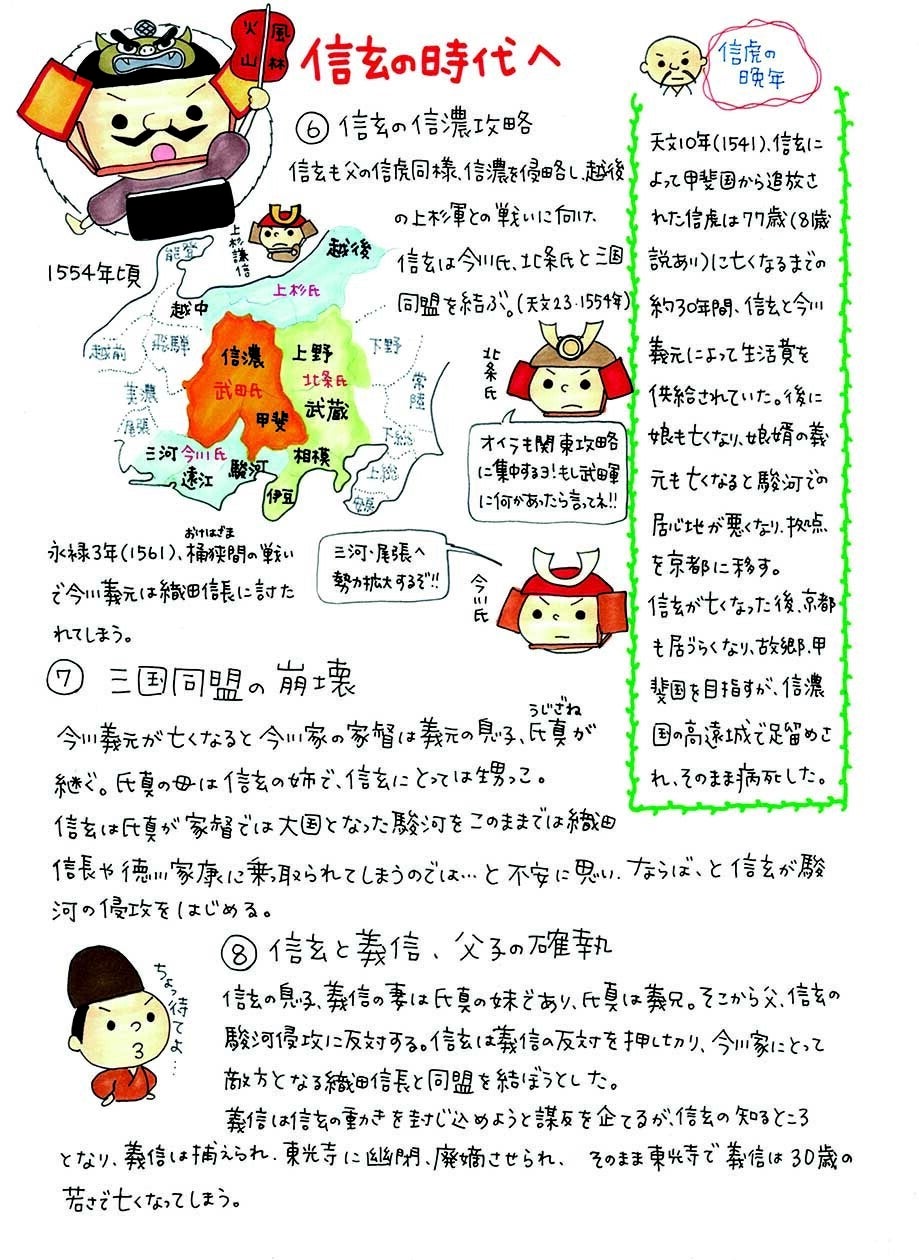 風林火山
信玄の時代へ
⑥ 信玄の信濃攻略
信玄も父の信虎同様、信濃を侵略し、越後
の上杉軍との戦いに向け、
信玄は今川氏、北条氏と三国
同盟を結ぶ。(天文23・1554年)
1554年頃
上杉謙信
能登
越後
上杉氏
越中
越前
飛騨
信濃
武田氏
甲斐
上野
北条氏
武蔵
下野
常陸
美濃
尾張
三河
今川氏
遠江
駿河
相模
伊豆
下総
上総
安房
北条氏
オイラも関東攻略
に集中するヨ!もし武田軍
に何かあったら言ってネ!!
三河・尾張へ
勢力拡大するぞ!!
今川氏
おけはざま
永禄3年(1561)、桶狭間の戦い
で今川義元は織田信長に討た
れてしまう。
⑦ 三国同盟の崩壊
うじざね
今川義元が亡くなると今川家の家督は義元の息子、氏真が
継ぐ。氏真の母は信玄の姉で、信玄にとっては甥っこ。
信玄は氏真が家督では大国となった駿河をこのままでは織田
信長や徳川家康に乗っ取られてしまうのでは…と不安に思い、ならば、と信玄が駿
河の侵攻をはじめる。
⑧ 信玄と義信、父子の確執
ちょっ待てよ…
信玄の息子、義信の妻は氏真の妹であり、氏真は義兄。そこから父、信玄の
駿河侵攻に反対する。信玄は義信の反対を押し切り、今川家にとって
敵方となる織田信長と同盟を結ぼうとした。
義信は信玄の動きを封じ込めようと謀反を企てるが、信玄の知るところ
となり、義信は捕えられ、東光寺に幽閉、廃嫡させられ、そのまま東光寺で義信は30歳の
若さで亡くなってしまう。
信虎の
晩年
天文10年(1541)、信玄に
よって甲斐国から追放さ
れた信虎は77歳(81歳
説あり)に亡くなるまでの
約30年間、信玄と今川
義元によって生活費を
供給されていた。後に
娘も亡くなり、娘婿の義
元も亡くなると駿河での
居心地が悪くなり、拠点
を京都に移す。
信玄が亡くなった後、京都
も居づらくなり、故郷、甲
斐国を目指すが、信濃
国の高遠城で足留めさ
れ、そのまま病死した。